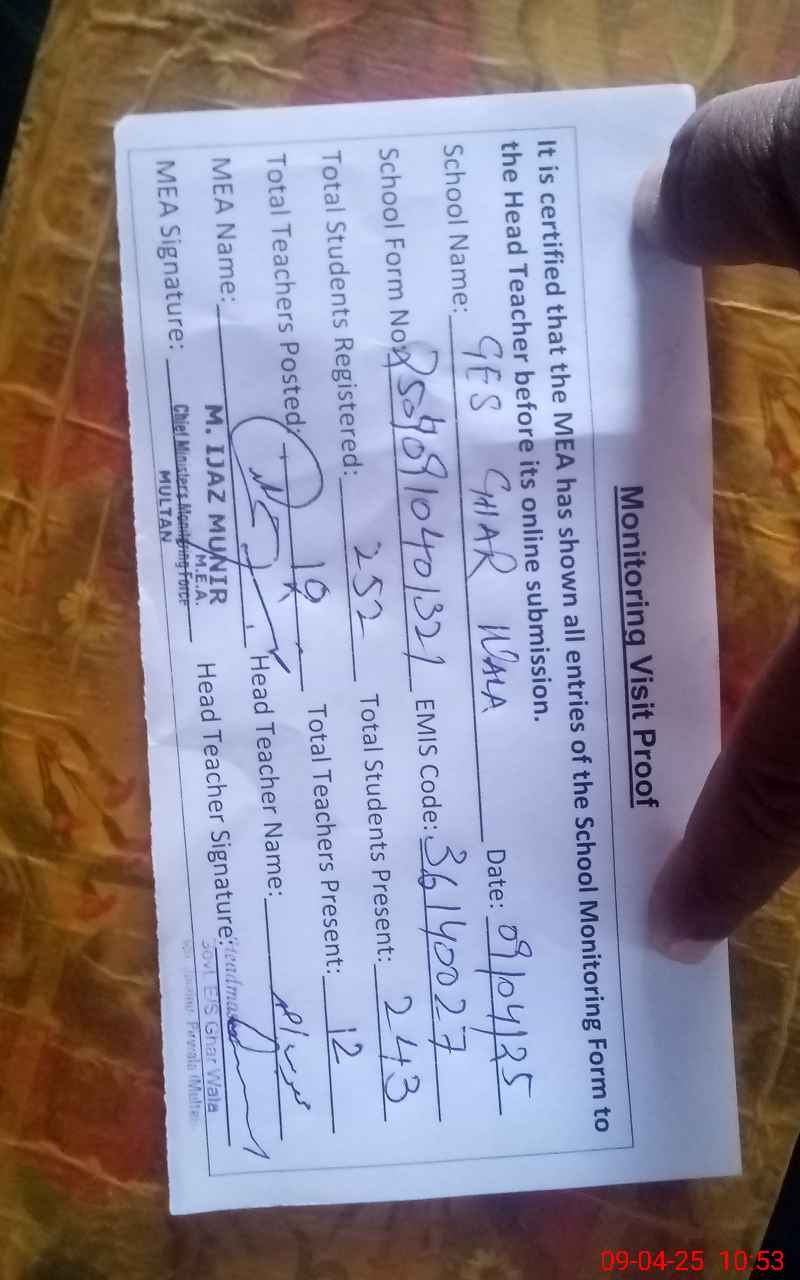 Monitoring Visit Proof
It is certified that the MEA has shown all entries of the School Monitoring Form to
the Head Teacher before its online submission.
School Name: GES GHAR WALA Date: 09/04/25
School Form No: EMIS Code: 36140027
Total Students Registered: 252 Total Students Present: 243
Total Teachers Posted: Total Teachers Present: 12
MEA Name: Head Teacher Name:
M. IJAZ MUNIR
M.E.A.
MEA Signature: Chief Ministers Monitoring Force Head Teacher Signature:
MULTAN
Govt. E/S Ghar Wala
09-04-25 10:53